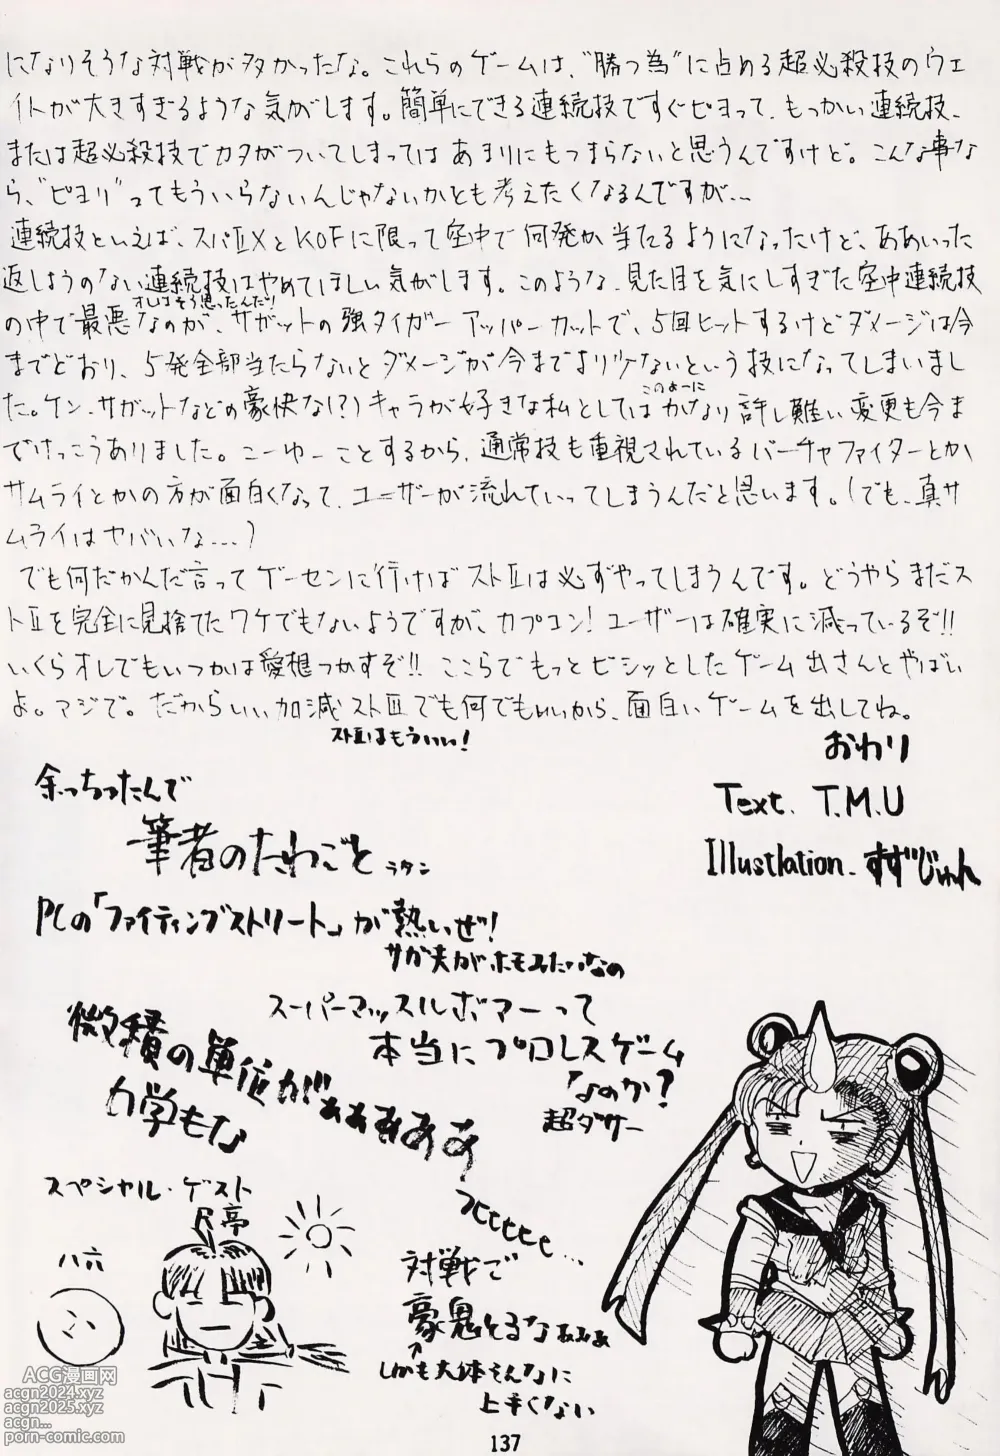 になりそうな対戦が多かったな。これらのゲームは、“勝つ為”に占める超必殺技のウェ
イトが大きすぎるような気がします。簡単にできる連続技ですぐピヨって、もっかい連続技、
または超必殺技でカタがついてしまってはあまりにもつまらないと思うんですけど。こんな事な
ら、“ピヨリ”ってもういらないんじゃないかとも考えたくなるんですが…
連続技といえば、スパⅡXとKOFに限って空中で何発か当たるようになったけど、ああいった
返しようのない連続技はやめてほしい気がします。このような、見た目を気にしすぎた空中連続技
オレはそう思ったんだ!
の中で最悪なのが、サガットの強タイガーアッパーカットで、5回ヒットするけどダメージは今
までどおり、5発全部当たらないとダメージが今までより少ないという技になってしまいまし
このよーに
た。ケン、サガットなどの豪快な(?)キャラが好きな私としてはかなり許し難い変更も今ま
でけっこうありました。こーゆーことするから、通常技も重視されているバーチャファイターとか
サムライとかの方が面白くなって、ユーザーが流れていってしまうんだと思います。(でも、真サ
ムライはヤバいな…)
でも何だかんだ言ってゲーセンに行けばストⅡは必ずやってしまうんです。どうやらまだス
トⅡを完全に見捨てたワケでもないようですが、カプコン!ユーザーは確実に減っているぞ!!
いくらオレでもいつかは愛想つかすぞ!!ここらでもっとビシッとしたゲーム出さんとやばい
よ。マジで。だからいい加減ストⅢでも何でもいいから、面白いゲームを出してね。
ストⅡはもういい!
おわり
Text. T.M.U
Illustlation. すずじゅん
余っちったんで
筆者のたわごと
PCの「ファイティングストリート」が熱いぜ!
サガ夫がホモみたいなの
スーパーマッスルボマーって
本当にプロレスゲーム
なのか?
超ダサー
微積の単位がぁぁぁぁぁ
力学もな
スペシャル・ゲスト
八六
対戦で
豪鬼とるなぁぁぁ
しかも大体そんなに
上手くない
ACG漫画网
acgn2024.xyz
acgn2025.xyz
acgn...
porn-comic.com
137